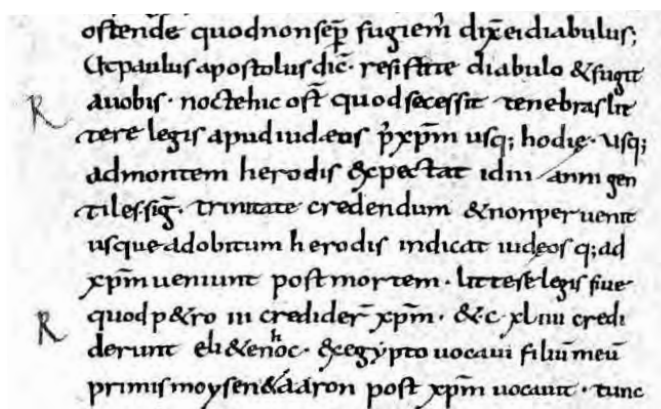 ostende quodnonsep̄ fugiem̄ dix̄ eidiabulus;
Etpaulus apostolus dic̄· resistite diabulo &fugit
R auobis· noctehic ost̄ quodsecessit tenebras lit
tere legis apud iudæos p̄xp̄m usq; hodie· usq;
admontem herodis expectat id anni gen
tiles· sig̅· trinitate credendum &nonperuenit
usqueadobitum herodis indicat iudeos q; ad
xp̄m ueniunt postmortem· legis siue
R quodp&ro iii credider̄ xp̄m· &c xl iiii credi
derunt eli&enhoc· &exegypto uocaui filiūmeū
primismoysen&aaron post xp̄m uocauit· tunc